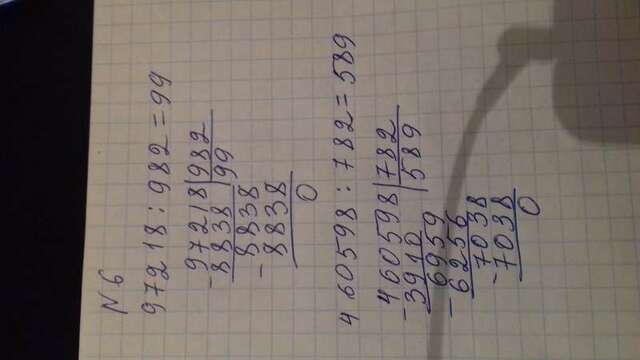 N 6
97218 : 982 = 99
97218 982
8838 99
8838
8838
0
460598 : 782 = 589
460598 782
3910 589
6959
6256
7038
7038
0